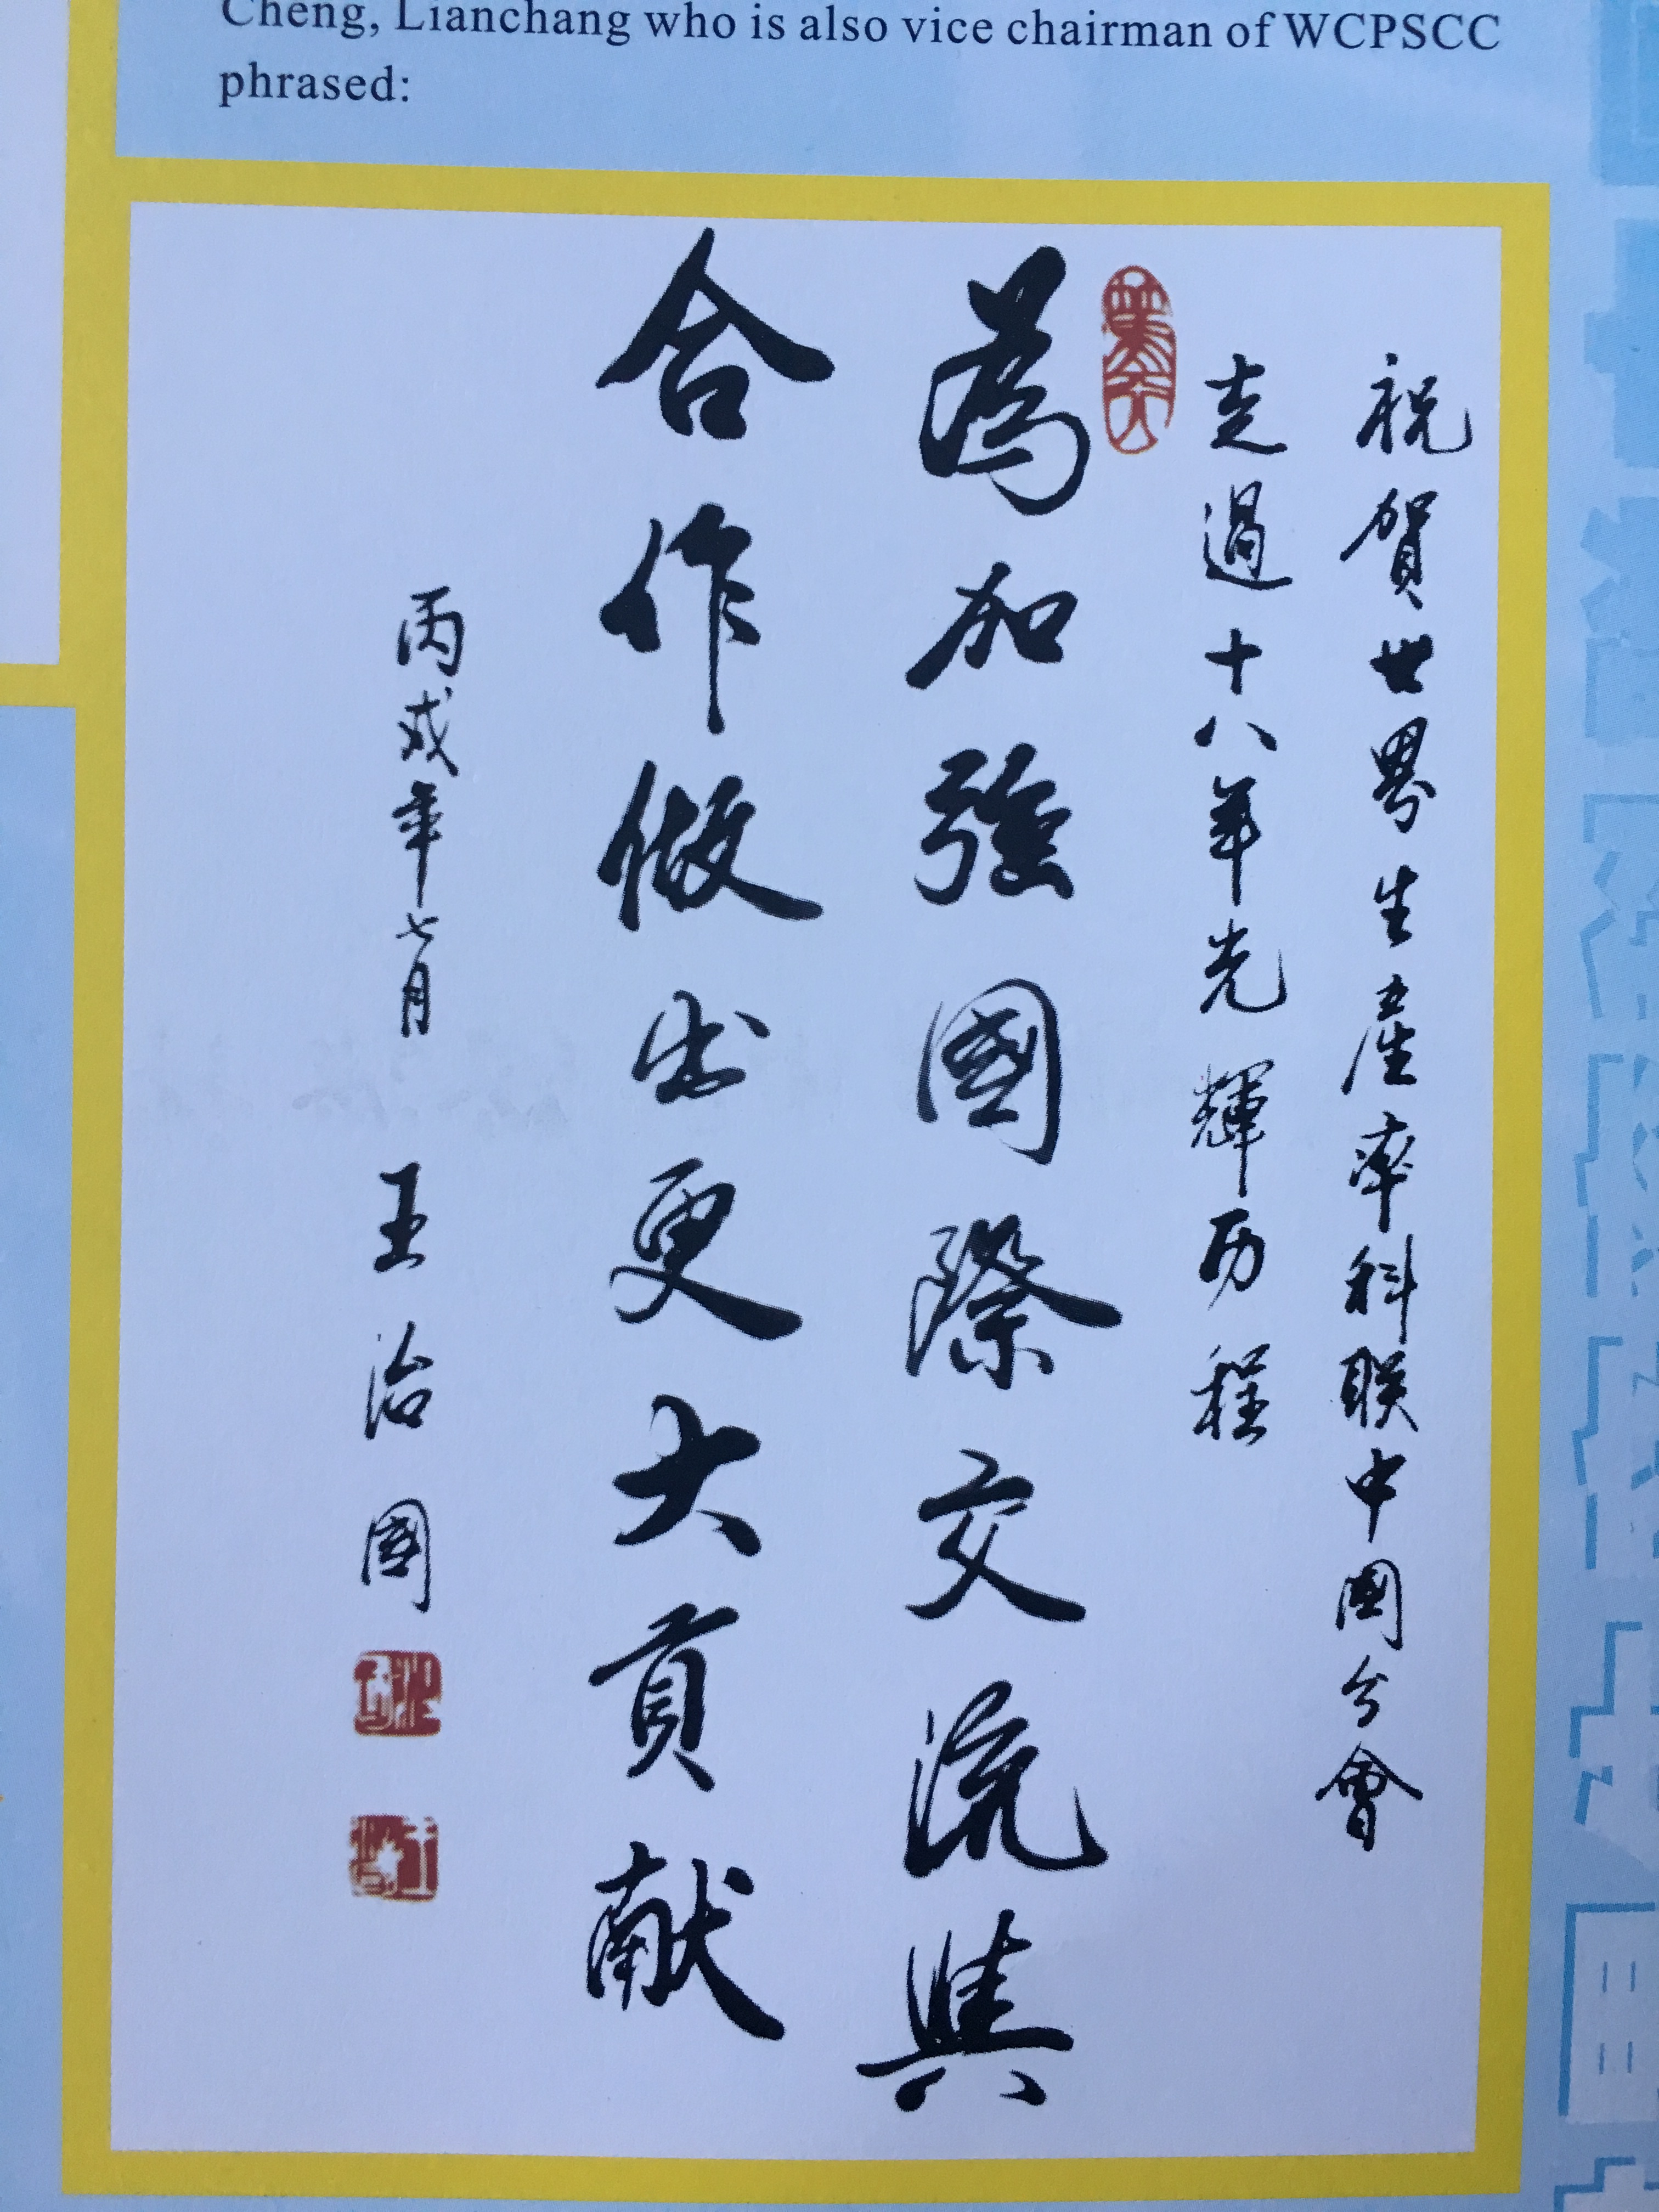 Cheng, Lianchang who is also vice chairman of WCPSCC
phrased:
祝賀世界生產率科联中國分會
走過十八年光輝历程
為加強國際交流與
合作做出更大貢献
丙戌年七月 王治國